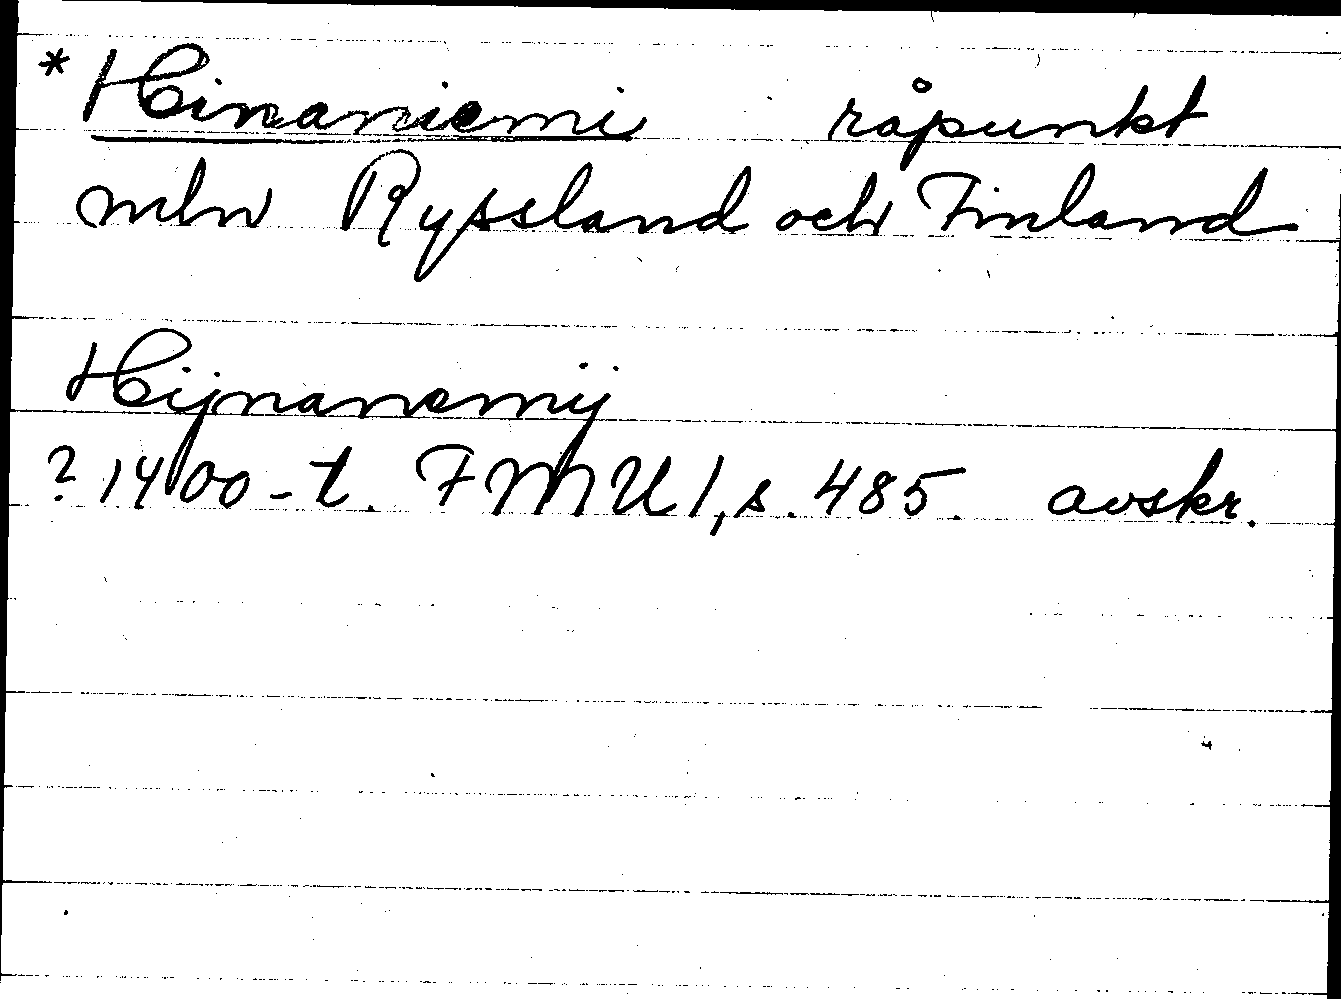 * Hinaniemi råpunkt
mln Ryssland och Finland
Hijnanemij
? 1400-t. FMU 1, s. 485. avskr.